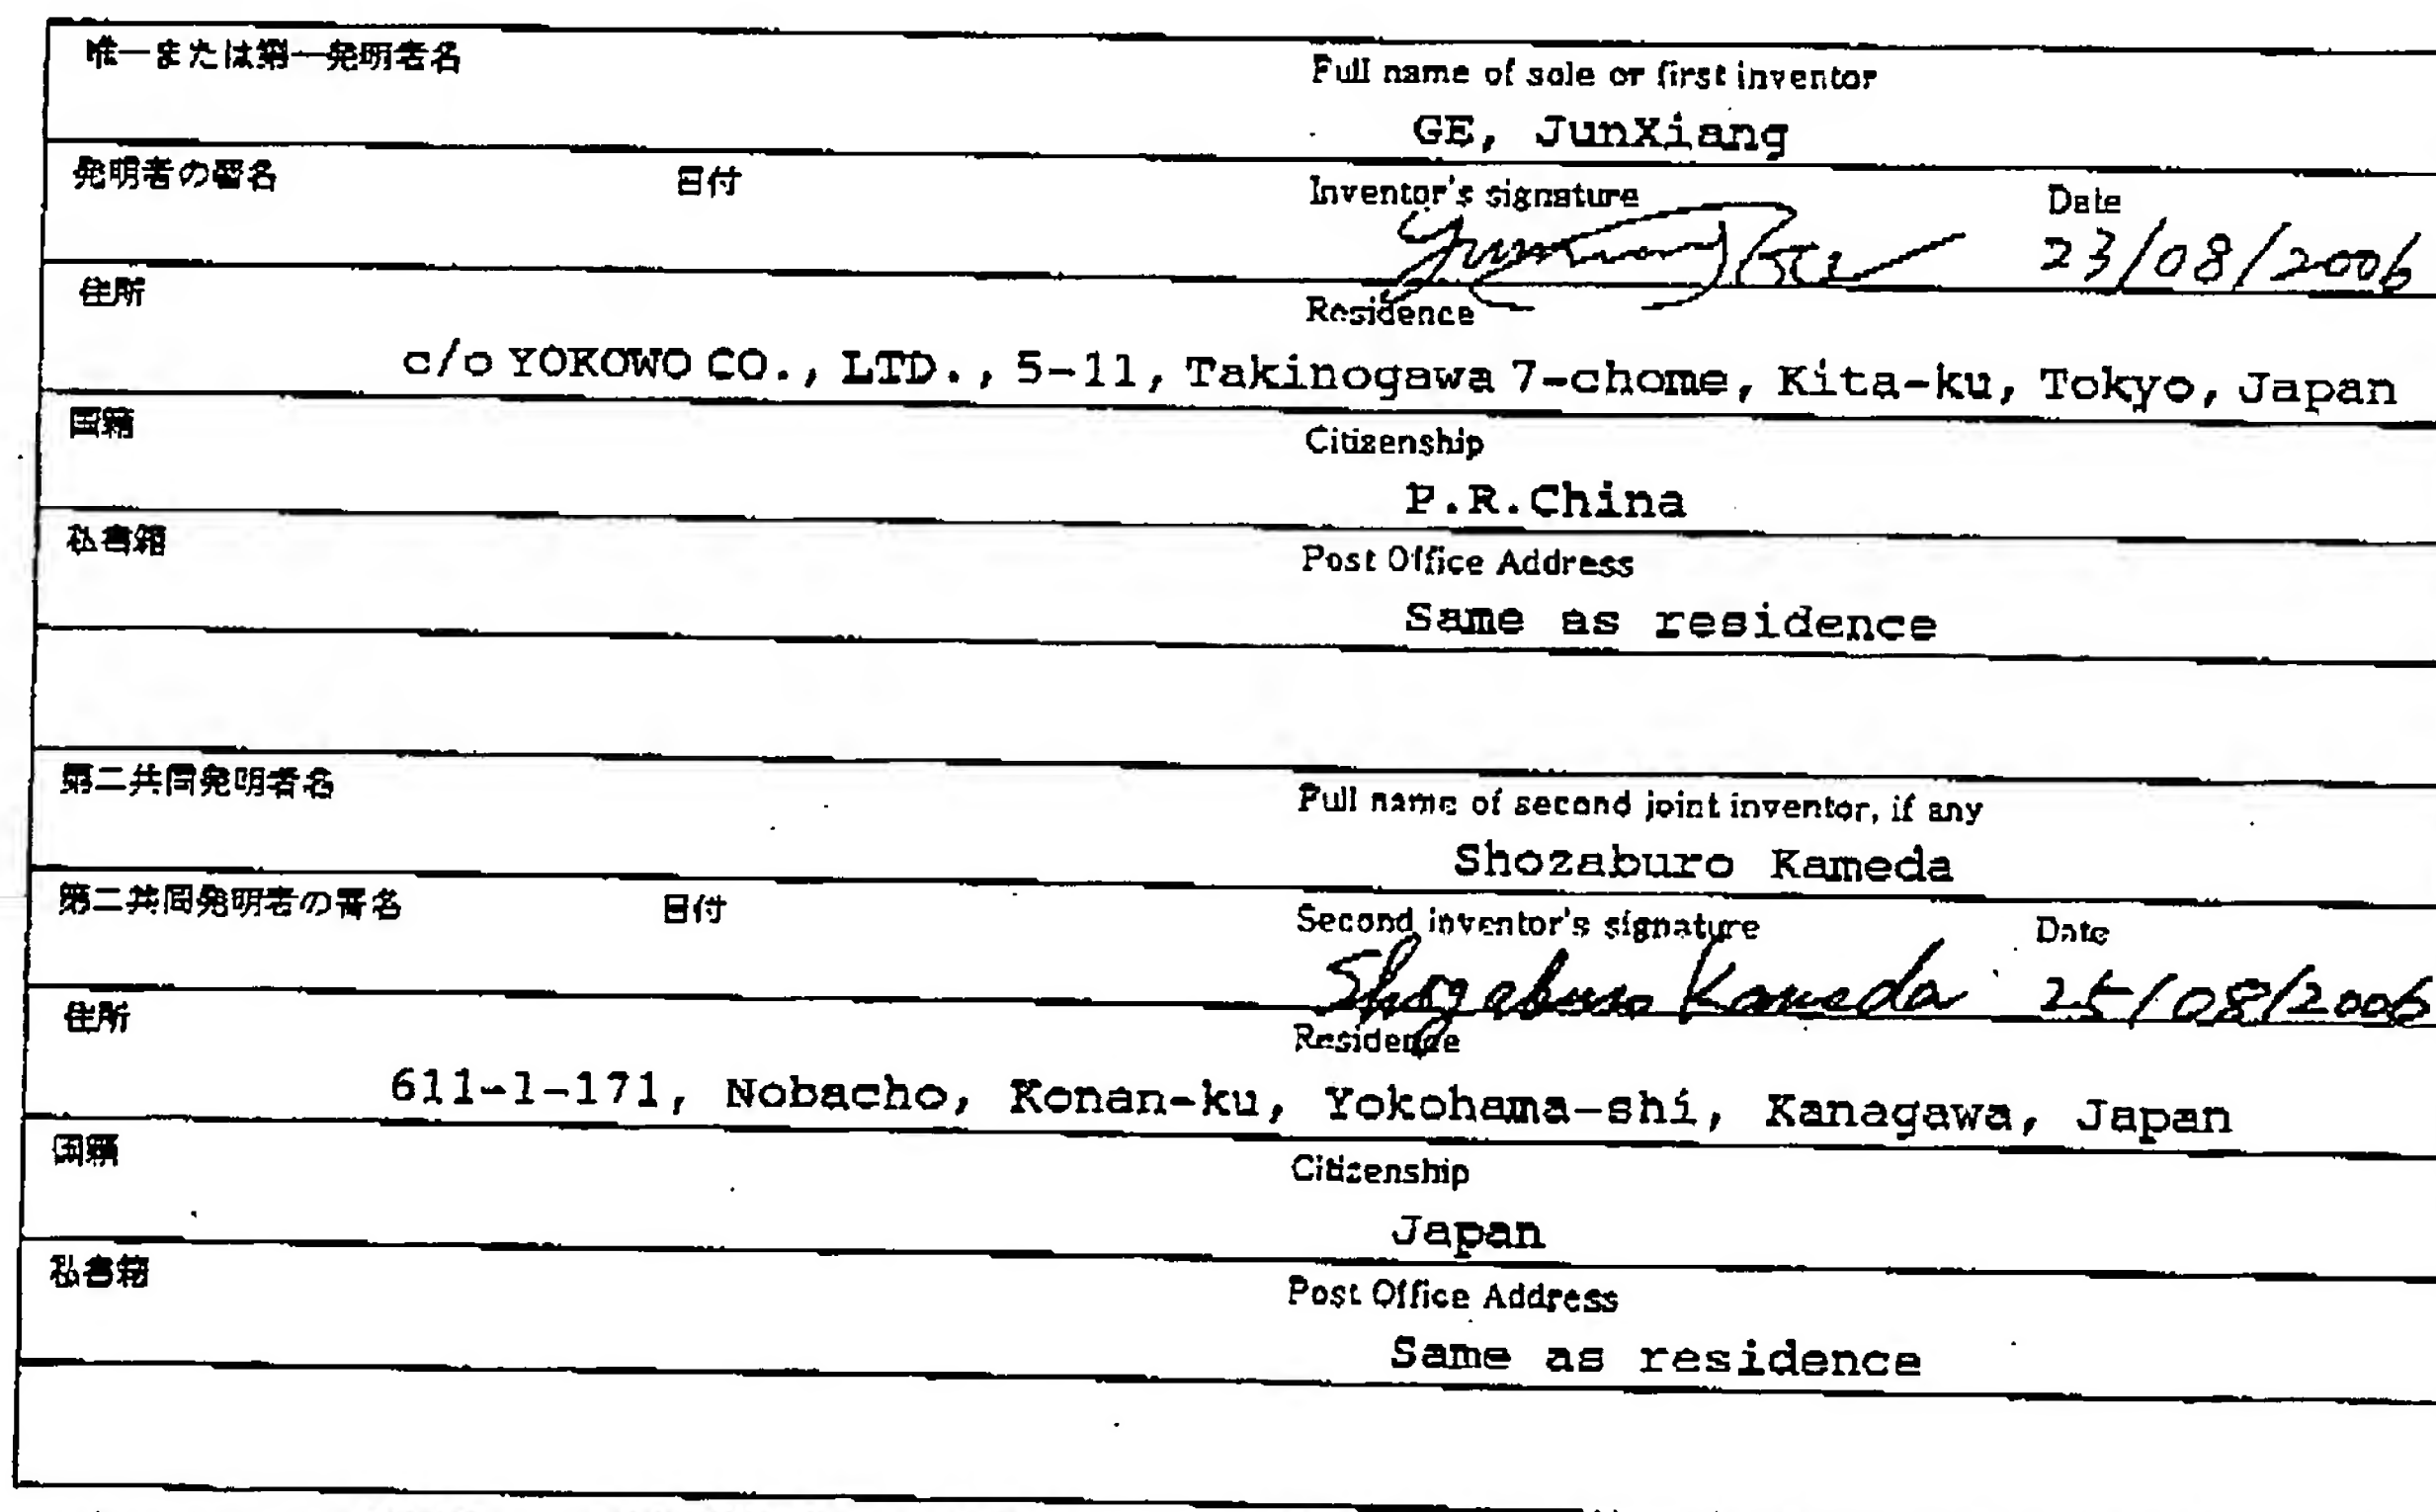 唯一または第一発明者名
Full name of sole or first inventor
GE, JunXiang
発明者の署名 日付
Inventor's signature Date
23/08/2006
住所
Residence
c/o YOKOWO CO., LTD., 5-11, Takinogawa 7-chome, Kita-ku, Tokyo, Japan
国籍
Citizenship
P.R.China
私書箱
Post Office Address
Same as residence
第二共同発明者名
Full name of second joint inventor, if any
Shozaburo Kameda
第二共同発明者の署名 日付
Second inventor's signature Date
Shozaburo Kameda 25/08/2006
住所
Residence
611-1-171, Nobacho, Konan-ku, Yokohama-shi, Kanagawa, Japan
国籍
Citizenship
Japan
私書箱
Post Office Address
Same as residence